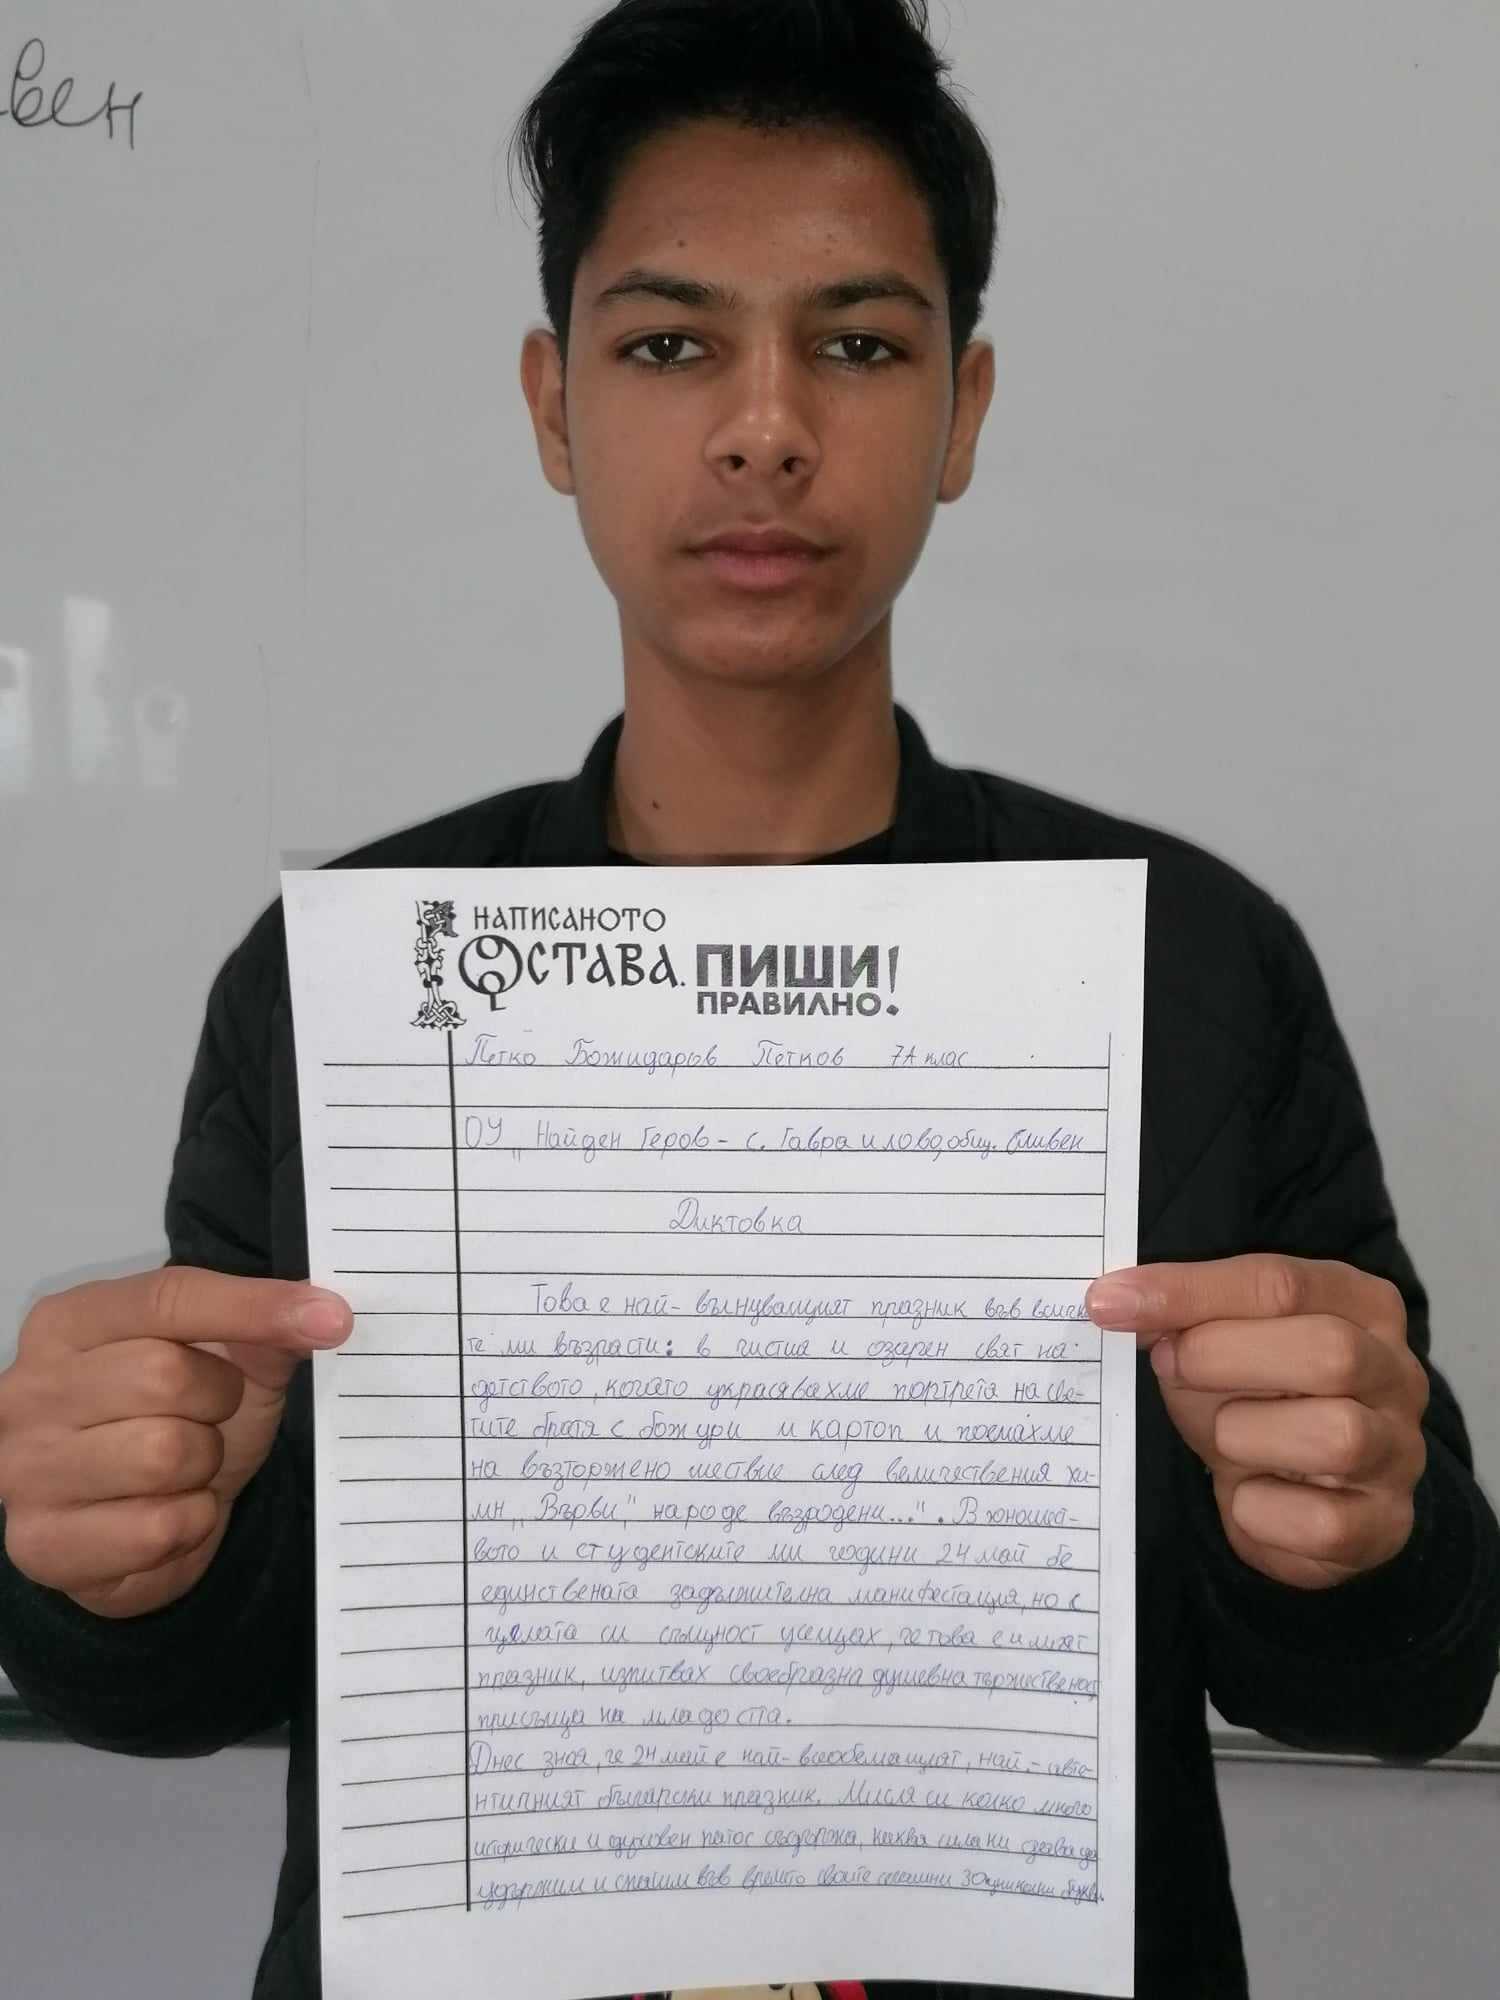 вен
НАПИСАНОТО
ОСТАВА. ПИШИ
ПРАВИЛНО!
Петко Божидаров Петков 7А клас
ОУ „Найден Геров - с. Гавраилово, общ. Сливен
Диктовка
Това е най-вълнуващият празник във всички
те ми възрасти: в чистия и озарен свят на
детството, когато украсявахме портрета на све-
тите братя с божури и картон и поемахме
на възторжено шествие след величествения хи-
мн „Върви," народе възродени...". В юношест-
вото и студентските ми години 24 май бе
единствената задължителна манифестация, но с
цялата си същност усещах, че това е и моят
празник, изпитвах своебразна душевна тържественост
присъща на младостта.
Днес зная, че 24 май е най-всеобемащият, най,-авте-
нтичният български празник. Мисля си колко много
исторически и духовен патос съдържа, каква сила ни дава да
удържим и спасим във времто своите 30 уникални букви.